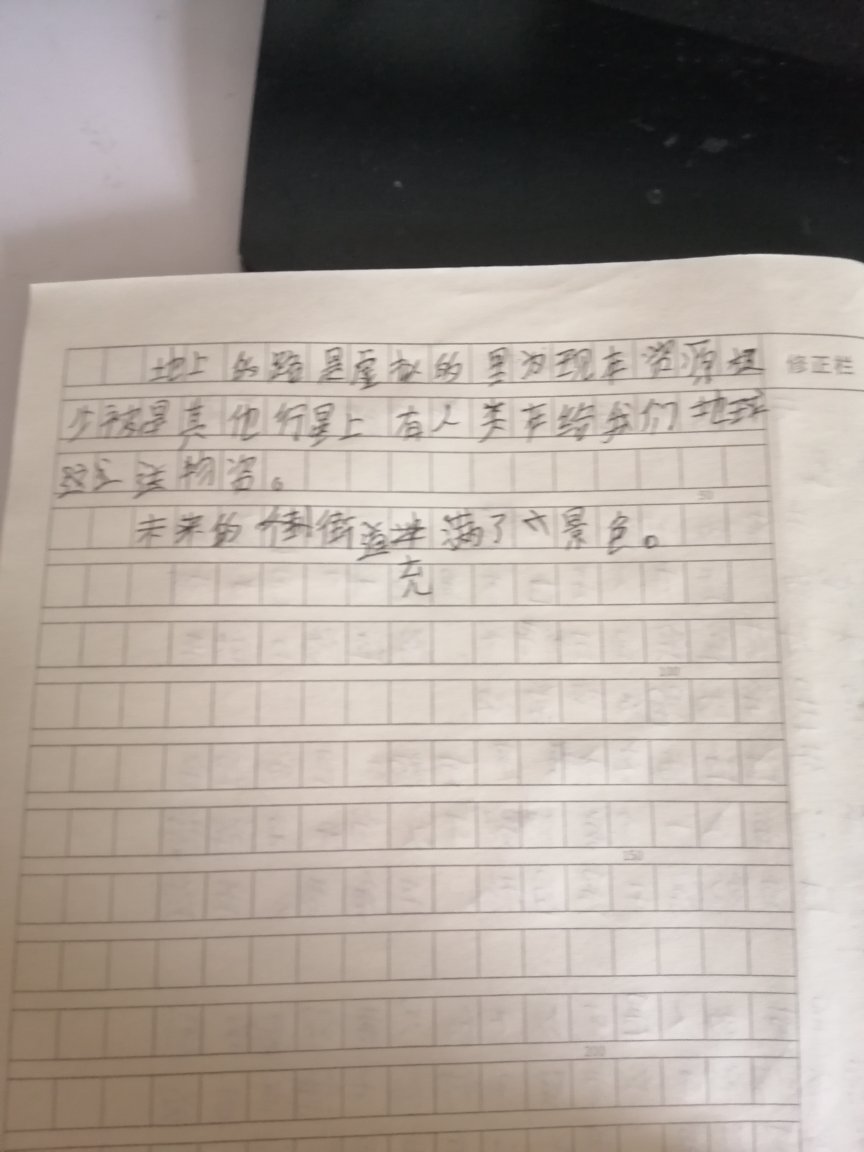 地上的路是虚拟的里为现在资源极 修正栏
少被是其他行星上有人类在给我们地球
这送物资。
50
未来的街道满了景色。
充
100
150
200